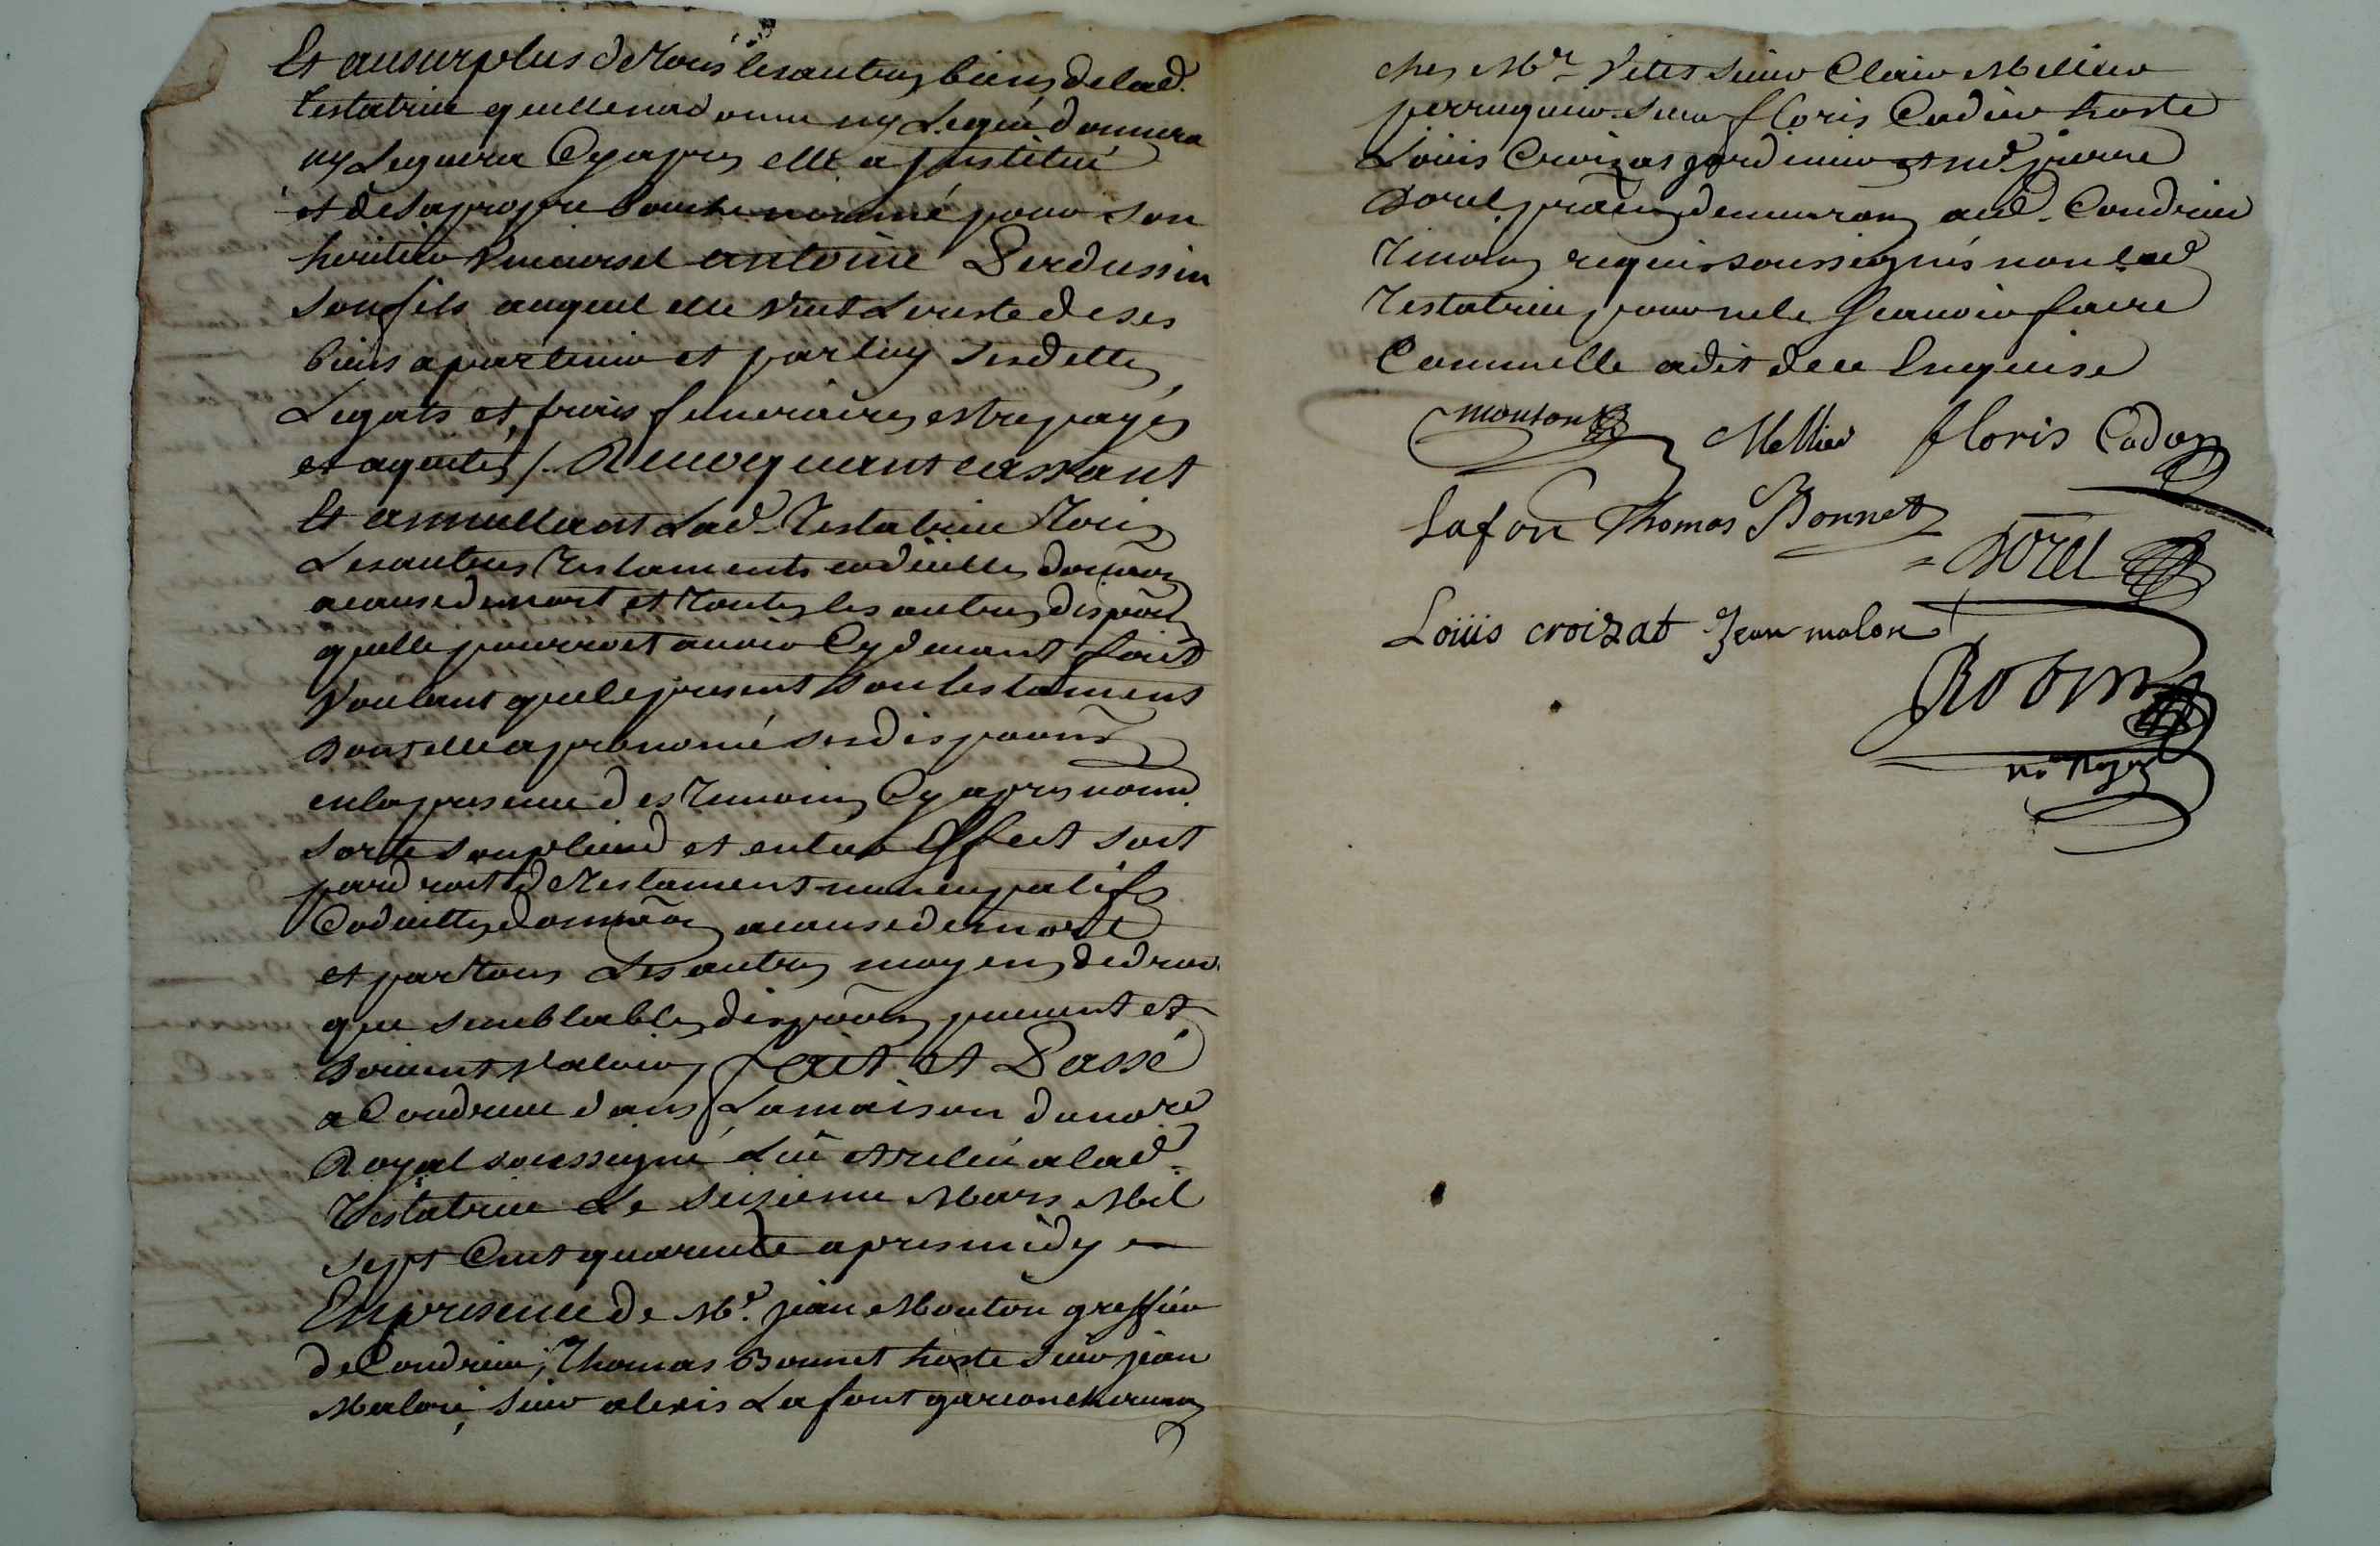 Et ausurplus de tous les autres biens de lad.
testatrice quelle na donné ny Legué donnera
ny Leguera Cyapres elle a Jnstitué
et de sa propre bouche nommé pour son
heritier Vniversel antoine Perdussin
son fils auquel elle veut Le reste de ses
biens apartenir et par luy ses dettes,
Legats et frais funeraires estre payés
et aquités /. Revoquant cassant
Et annullant Lad. Testatrice Tous
Les autres Testaments codicilles donnaõns
a cause de mort et toutes les autres dispoõns
quelle pourroit avoir Cydevant fait
Voulant que le present son testament
dont elle a prenomé ses dispoõns
en la presence des temoins Cyapres només
sorte son plein et entier Effect soit
par droit de testament nuncupatif
Codicille, donnaõn a cause de mort
et par tous Les autres moyens de droit
que semblables dispoõns peuvent et
doivent valoir, Fait et Passé
a Condrieu dans La maison du no.re
Royal soussigné Lû et relû a lad.
Testatrice Le seizieme Mars Mil
sept Cent quarente apres midy
En presence de Me. jean Mouton greffier
de Condrieu, Thomas Bonnet hoste sieur jean
Malon, sieur alexis Lafont garcon
ches Mr. Sieur Clair Mellier
perruquier sieur floris Cadier hoste
Louis Croizat jardinier et me. pierre
Dorel pratien demeurans aud. Condrieu
Temoins requis soussignés non lad.
Testatrice pour ne le Scavoir faire
Comme elle a dit de ce Enquise
mouton Mellier floris Cadier
Lafon Thomas Bonnet
Dorel
Louis croizat Jean malon
Robin
no.re Royal